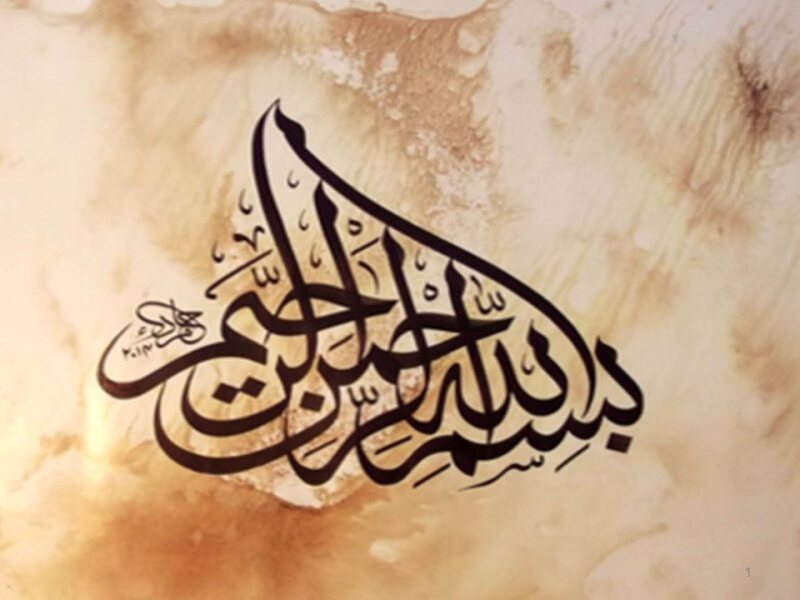 بسم الله الرحمن الرحيم
٢٠١٣
1